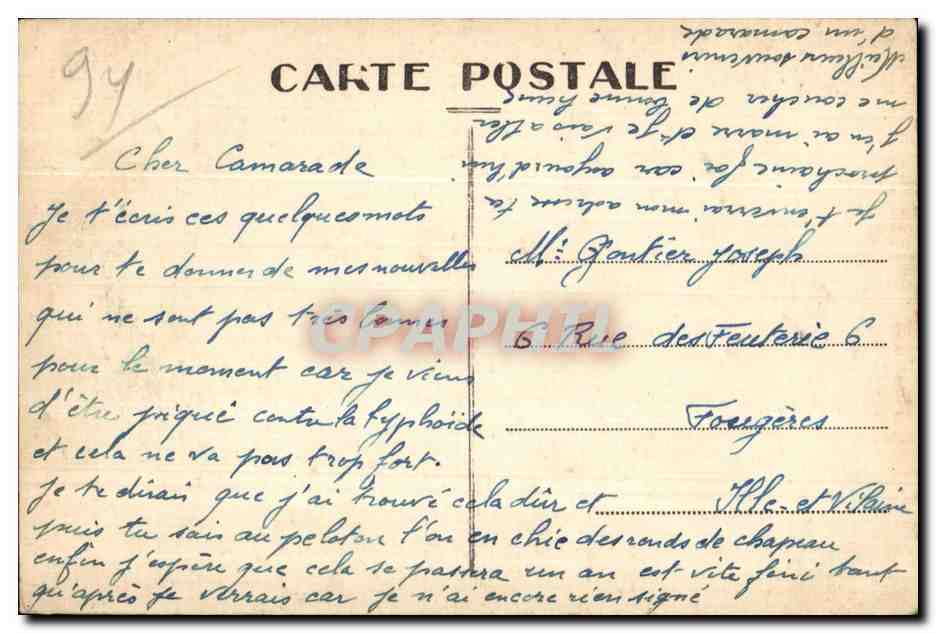 94
CARTE POSTALE
Cher Camarade
Je t'écris ces quelques mots
pour te donner de mes nouvelles
qui ne sont pas très bonnes
pour le moment car je viens
d'être piqué contre la typhoïde
et cela ne va pas trop fort.
je te dirais que j'ai trouvé cela dûr et
puis tu sais au peloton l'on en chie des ronds de chapeau
enfin j'espère que cela se passera un an est vite fini tant
qu'après je verrais car je n'ai encore rien signé
Je t'enverrai mon adresse la
prochaine foi car aujourd'hui
j'en ai marre et je vais aller
me coucher de bonne heure
Meilleurs souvenirs
d'un camarade
Mr: Joseph
6 Rue des Feuterie 6
Fougères
Ille-et Vilaine
CPAPHIL